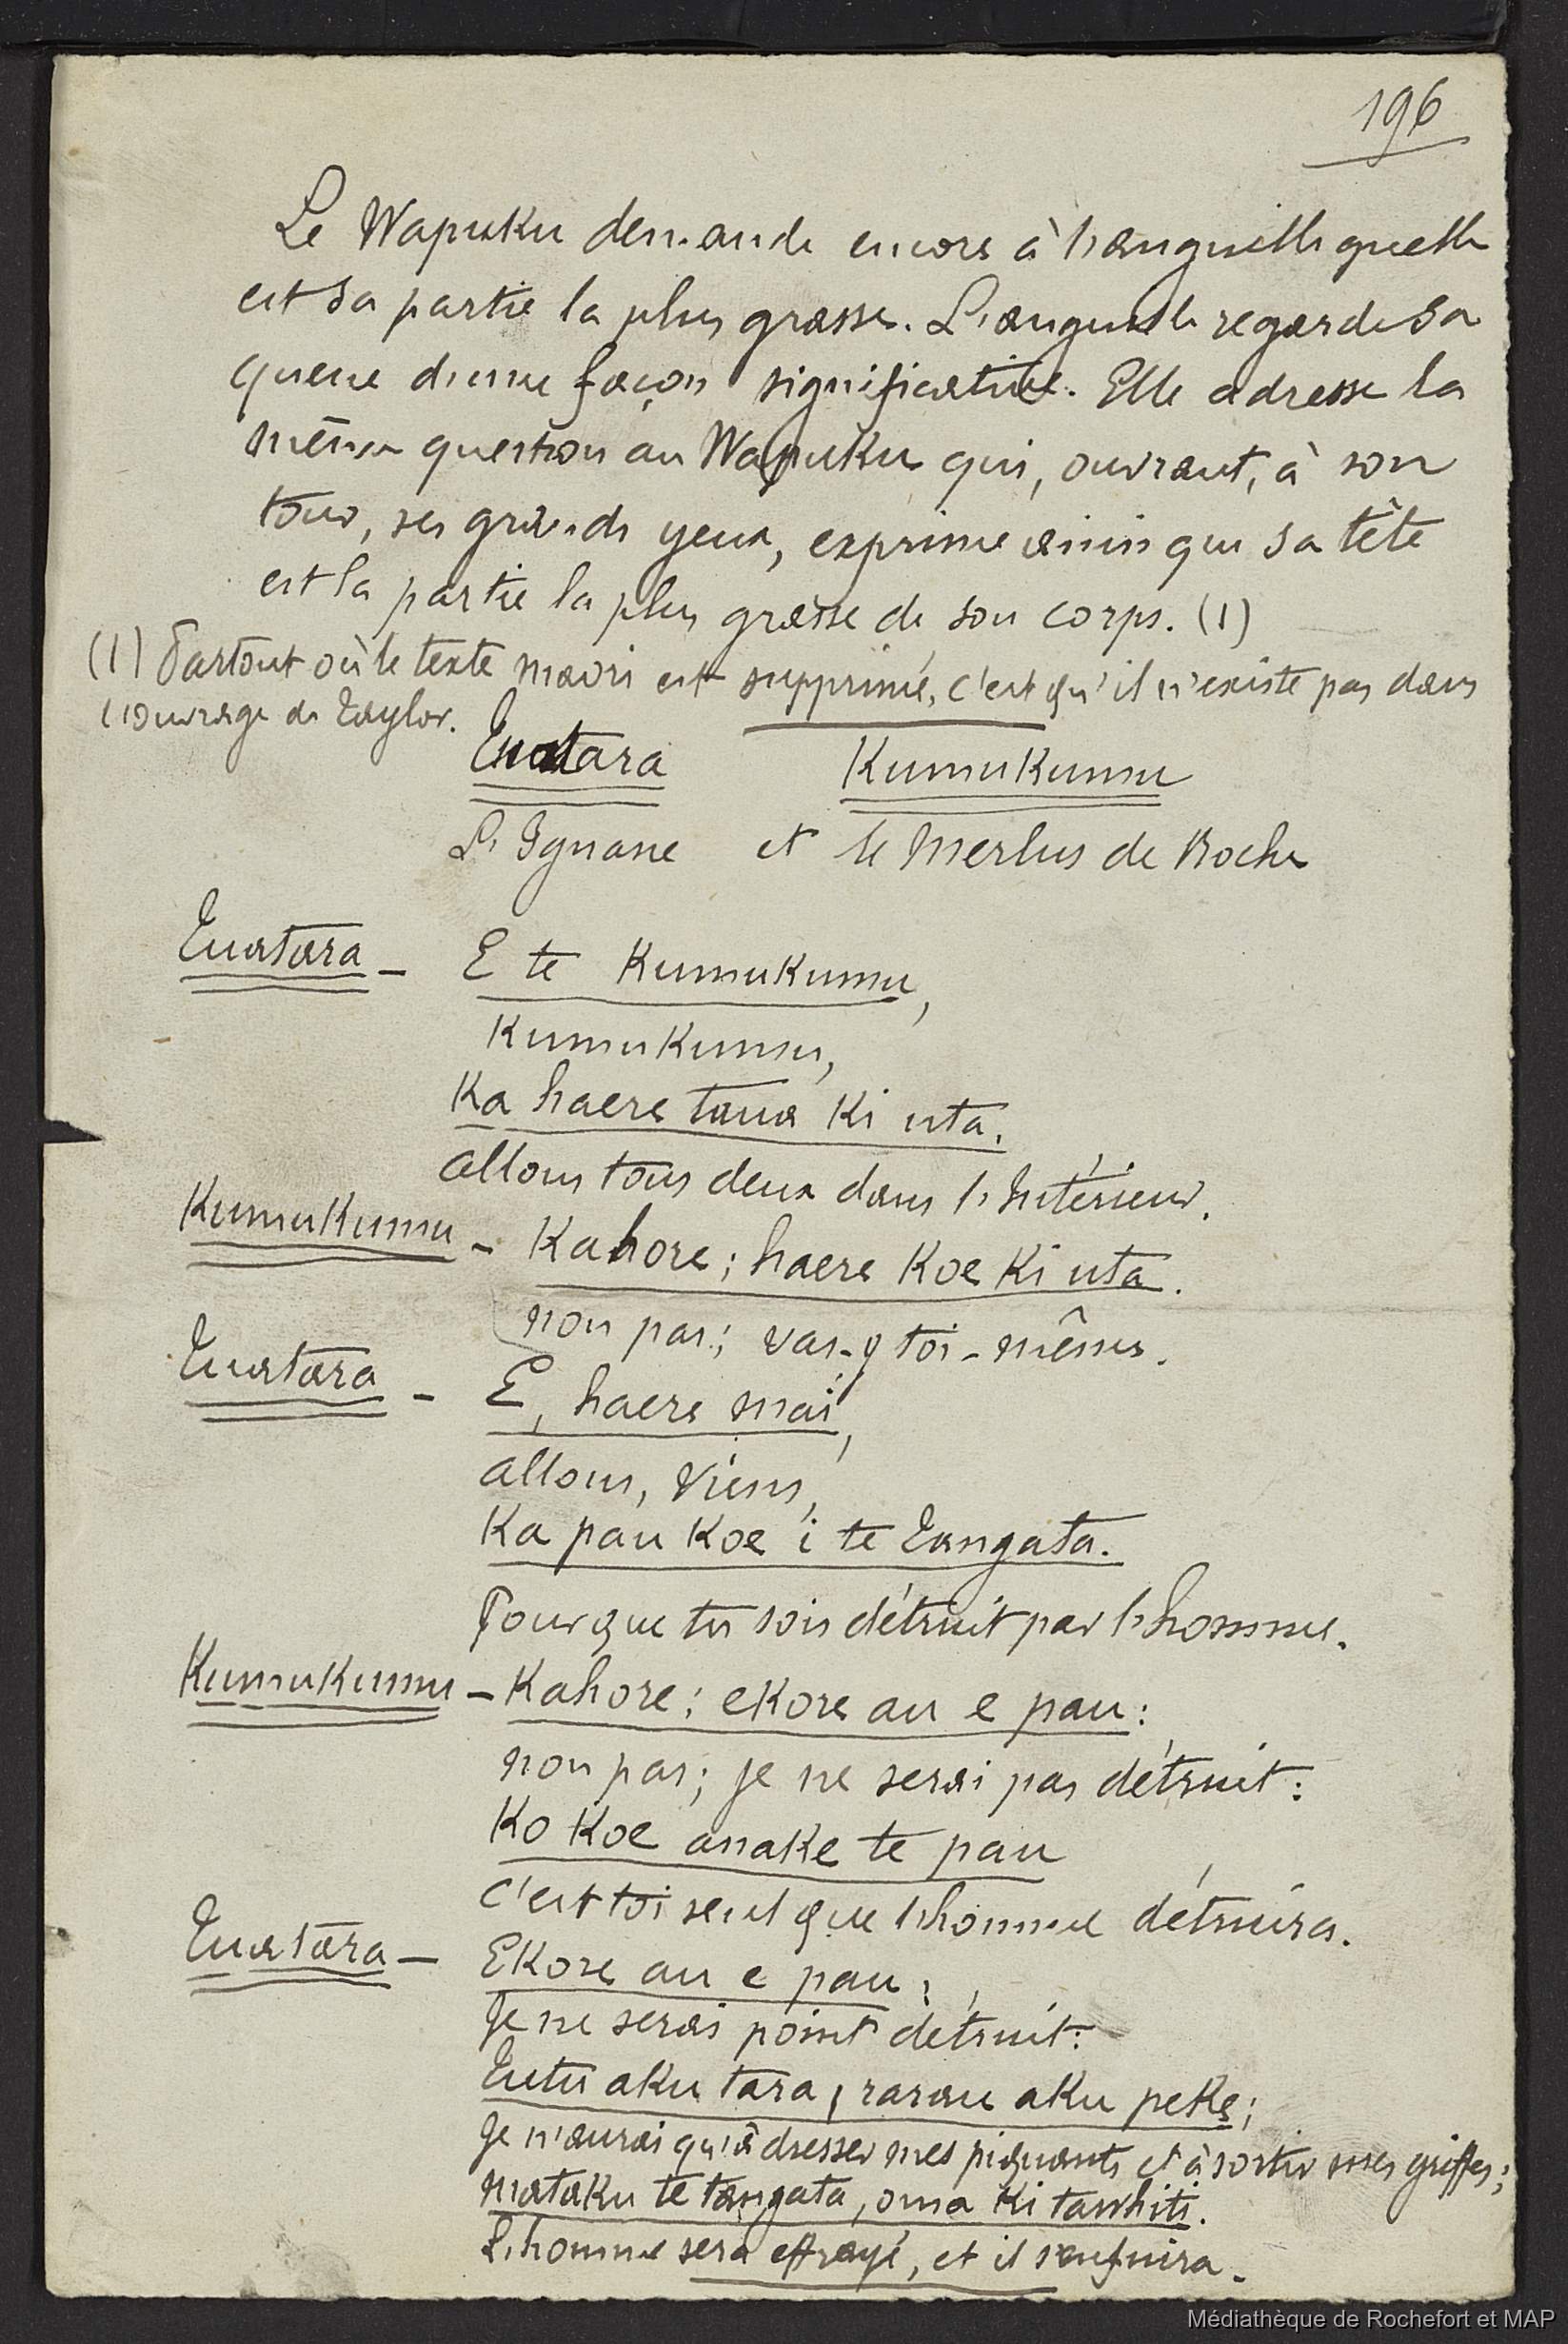 196
Le Wapuku demande encore à l'anguille quelle
est sa partie la plus grasse. L'anguille regarde sa
queue d'une façon significative. Elle adresse la
même question au Wapuku qui, ouvrant, à son
tour, ses grands yeux, exprime ainsi que sa tête
est la partie la plus grasse de son corps. (1)
(1) Partout où le texte maori est supprimé, c'est qu'il n'existe pas dans
l'ouvrage de Taylor.
Tuatara Kumukumu
L'Iguane et le Merlus de Roche
Tuatara - E te Kumukumu,
Kumukumu,
Ka haere taua ki uta.
allons tous deux dans l'intérieur.
Kumukumu - Kahore; haere koe ki uta.
non pas; vas-y toi-même.
Tuatara - E, haere mai,
allons, viens,
Ka pau koe i te Tangata.
Pour que tu sois détruit par l'homme.
Kumukumu - Kahore; ekore au e pau:
non pas; je ne serai pas détruit:
Ko koe anake te pau
c'est toi seul que l'homme détruira.
Tuatara - Ekore au e pau;
je ne serai point détruit:
Tutu aku tara, rarau aku peke;
je n'aurai qu'à dresser mes piquants et à sortir mes griffes;
mataku te tangata, oma ki tawhiti.
L'homme sera effrayé, et il s'enfuira.
Médiathèque de Rochefort et MAP